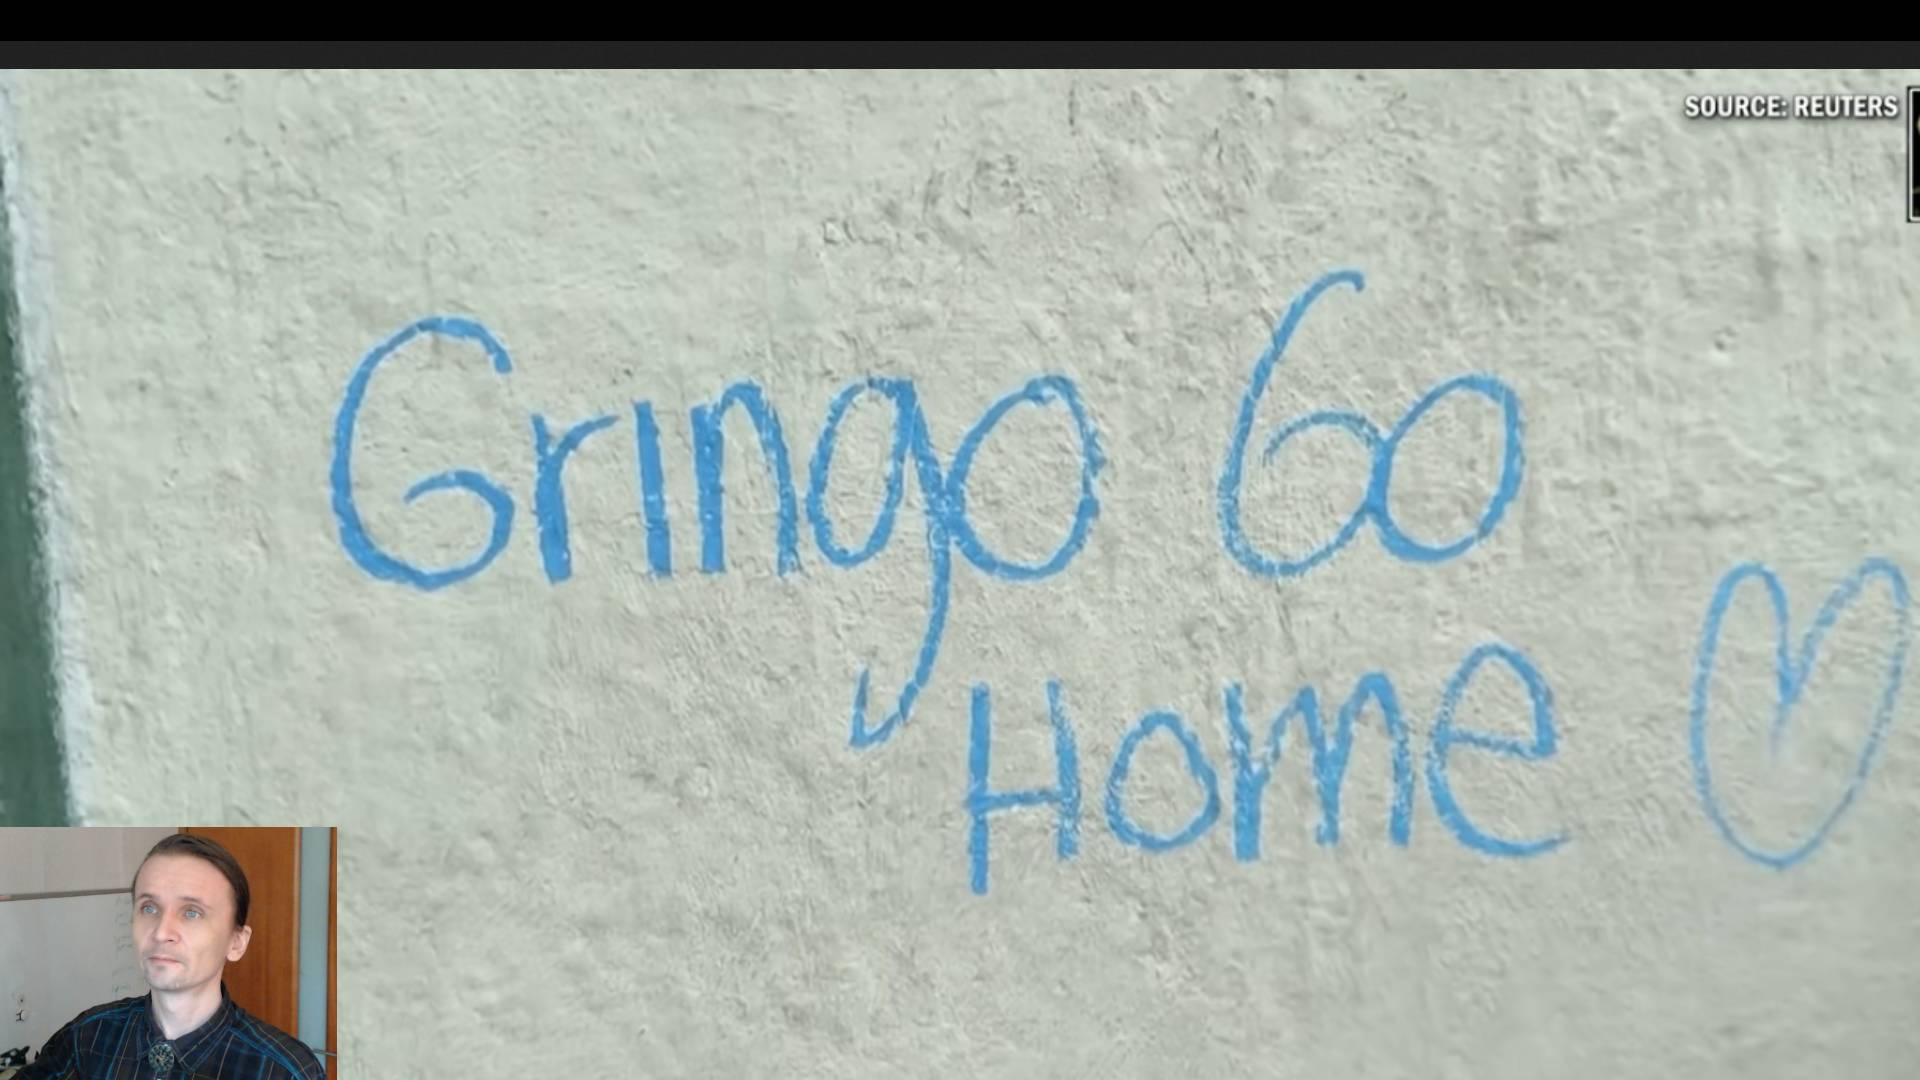 SOURCE: REUTERS
Gringo Go
Home